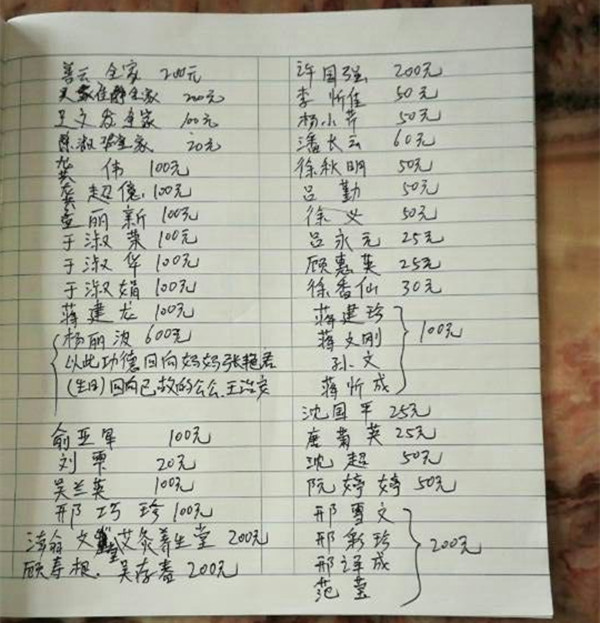 善云全家 200元
全家 200元
王文发全家 100元
陈淑 全家 20元
龚 伟 100元
龚超億 100元
丽新 100元
于淑荣 100元
于淑华 100元
于淑娟 100元
蒋建龙 100元
杨丽波 600元
以此功德回向妈妈张艳君
(生日)回向已故的公公王治安
俞亚军 100元
刘军 20元
吴兰英 100元
邢巧珍 100元
文 艾灸养生堂 200元
顾寿根、吴存春 200元
许国强 200元
李忻佳 50元
杨小萍 50元
潘长云 60元
徐秋明 50元
吕勤 50元
徐义 50元
吕永元 25元
顾惠英 25元
徐香仙 30元
蒋建珍
蒋文刚
孙文
蒋忻成
100元
沈国平 25元
唐菊英 25元
沈超 50元
阮婷婷 50元
邢雪文
邢彩珍
邢译成
范莹
200元